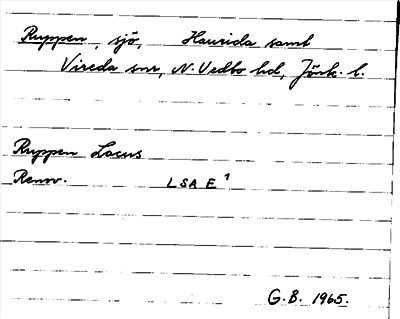 Ruppen, sjö, Haurida samt
Vireda snr, N. Vedbo hd, Jönk. l.
Ruppen Lacus
Renv. LSA E¹
G.B. 1965.